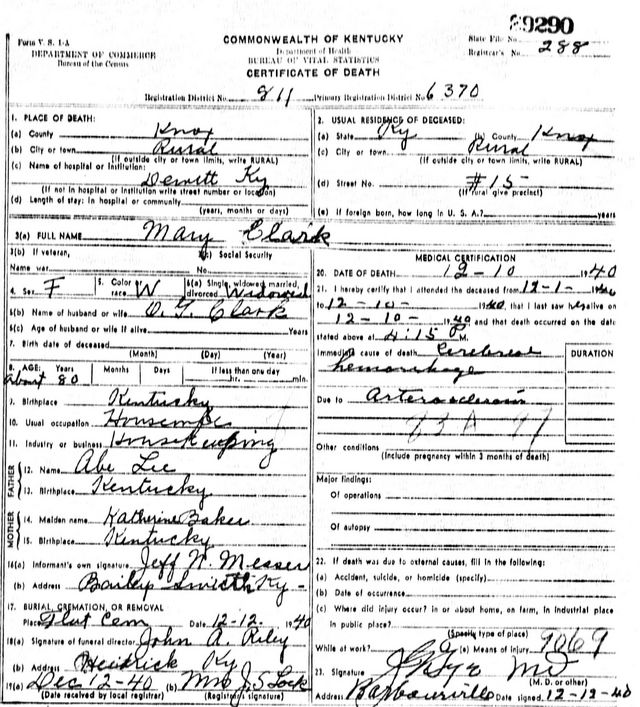 29290
Form V. S. 1-A
DEPARTMENT OF COMMERCE
Bureau of the Census
COMMONWEALTH OF KENTUCKY
Department of Health
BUREAU OF VITAL STATISTICS
CERTIFICATE OF DEATH
State File No.
Registrar's No. 288
Registration District No. 811 Primary Registration District No. 6370
1. PLACE OF DEATH:
(a) County Knox
(b) City or town Rural
(If outside city or town limits, write RURAL)
(c) Name of hospital or institution:
Dewitt Ky
(If not in hospital or institution write street number or location)
(d) Length of stay: In hospital or community
(years, months or days)
2. USUAL RESIDENCE OF DECEASED:
(a) State Ky (b) County Knox
(c) City or town Rural
(If outside city or town limits, write RURAL)
(d) Street No. #15
(If rural give precinct)
(e) If foreign born, how long in U. S. A.? years
3(a) FULL NAME Mary Clark
3(b) If veteran, 3(c) Social Security
Name war No.
4. Sex F 5. Color or race W 6(a) Single, widowed, married, divorced Widowed
6(b) Name of husband or wife O. T. Clark
6(c) Age of husband or wife if alive Years
7. Birth date of deceased
(Month) (Day) (Year)
8. AGE: Years Months Days If less than one day
About 80 hr. min.
9. Birthplace Kentucky
10. Usual occupation Housewife
11. Industry or business Housekeeping
FATHER
12. Name Abe Lee
13. Birthplace Kentucky
MOTHER
14. Maiden name Katherine Baker
15. Birthplace Kentucky
16(a) Informant's own signature Jeff N. Messer
(b) Address Bailey Ky
17. BURIAL, CREMATION, OR REMOVAL
Place Cem Date 12-12. 1940
18(a) Signature of funeral director John A. Riley
(b) Address Heidrick Ky
19(a) Dec 12-40 (b) Mrs J. S. Lock
(Date received by local registrar) (Registrar's signature)
MEDICAL CERTIFICATION
20. DATE OF DEATH 12-10 1940
21. I hereby certify that I attended the deceased from 12-1- 1940
to 12-10- 1940, that I last saw her alive on
12-10- 1940 and that death occurred on the date
stated above at 4:15 P M.
Immediate cause of death Cerebral
hemorrhage
DURATION
Due to Arterosclerosis
83A 97
Other conditions
(Include pregnancy within 3 months of death)
Major findings:
Of operations
Of autopsy
22. If death was due to external causes, fill in the following:
(a) Accident, suicide, or homicide (specify)
(b) Date of occurrence
(c) Where did injury occur? in or about home, on farm, in industrial place
in public place?
(Specify type of place)
While at work? (e) Means of injury 9069
23. Signature MD
(M. D. or other)
Address Barbourville Date signed 12-12-40